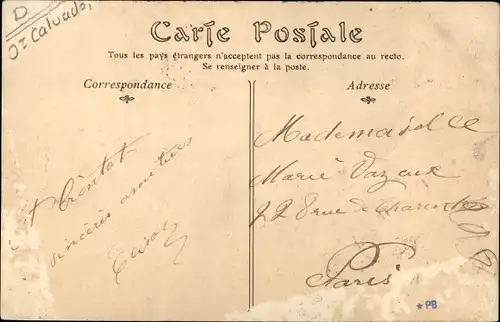 D
Calvados
Carte Postale
Tous les pays étrangers n'acceptent pas la correspondance au recto.
Se renseigner à la poste.
Correspondance
Adresse
bientot
sincères amitiés
Mademoiselle
Marie Vazeux
22 rue de Charenton
Paris
*PB